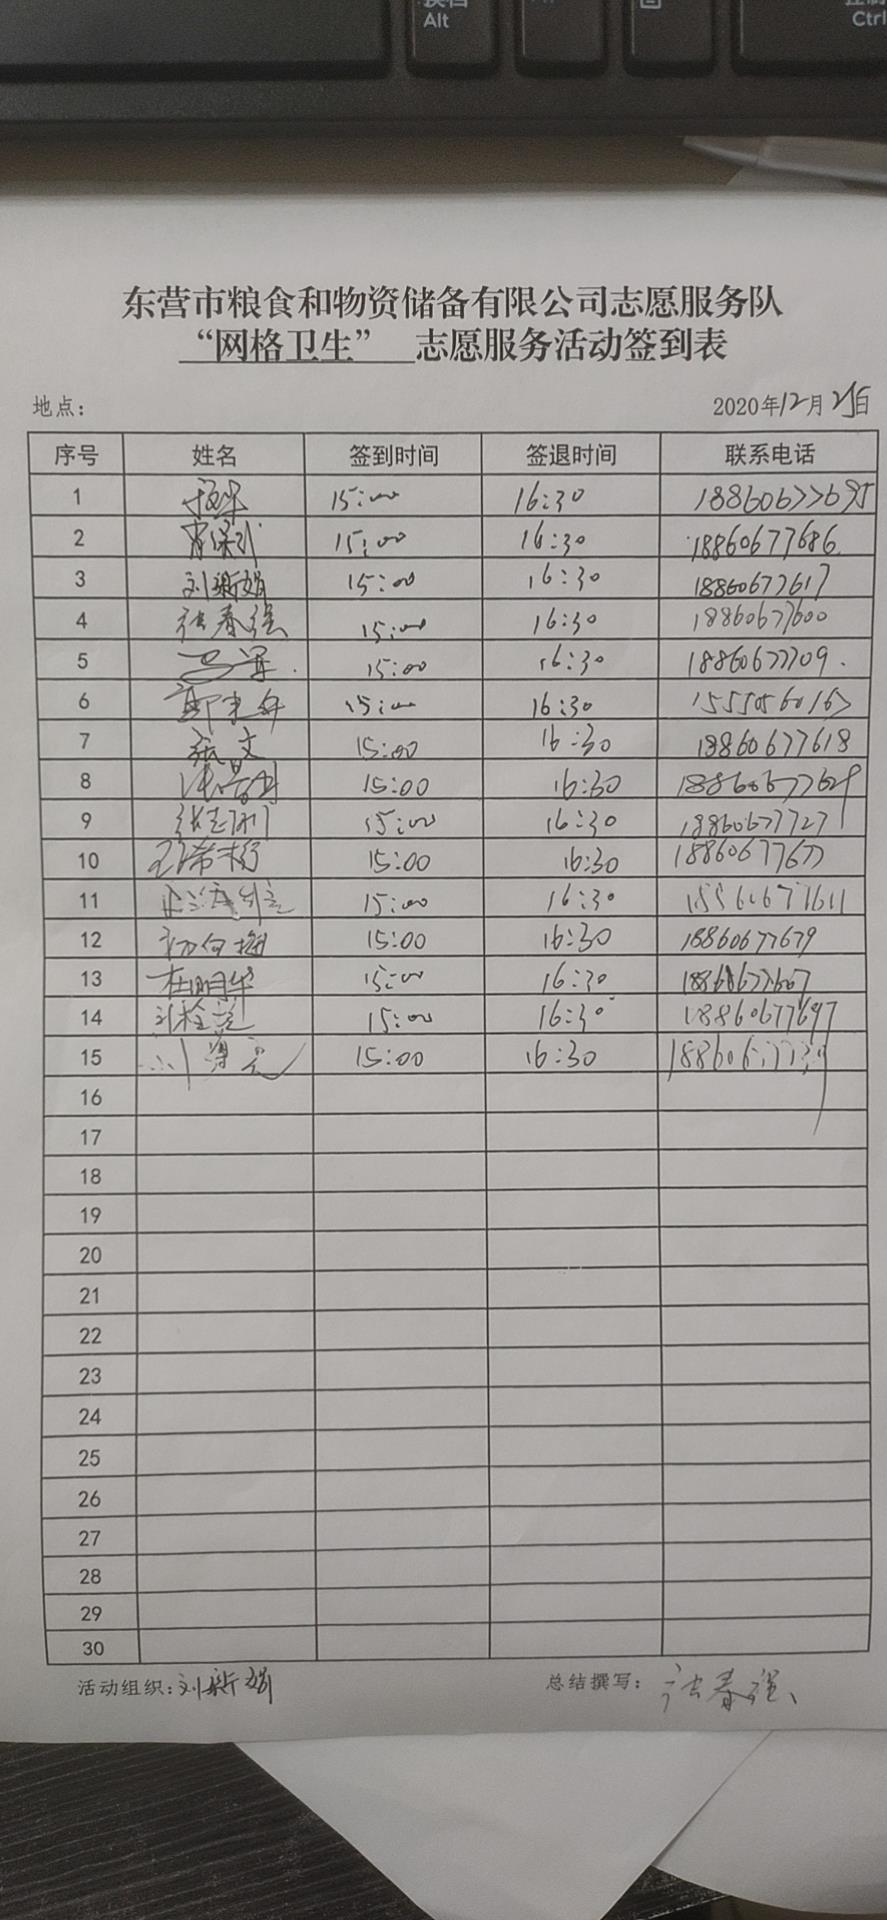 Alt
Ctrl
东营市粮食和物资储备有限公司志愿服务队
“网格卫生” 志愿服务活动签到表
地点： 2020年12月25日
序号 姓名 签到时间 签退时间 联系电话
1 15:00 16:30
2 15:00 16:30 18860677686
3 刘新娟 15:00 16:30 18860677617
4 张春强 15:00 16:30 18860677600
5 15:00 16:30 18860677709
6 15:00 16:30
7 15:00 16:30 18860677618
8 15:00 16:30 18860677629
9 15:00 16:30 18860677727
10 15:00 16:30 18860677677
11 15:00 16:30
12 15:00 16:30 18860677679
13 杜明华 15:00 16:30
14 15:00 16:30 18860677697
15 15:00 16:30
16
17
18
19
20
21
22
23
24
25
26
27
28
29
30
活动组织：刘新娟 总结撰写：张春强